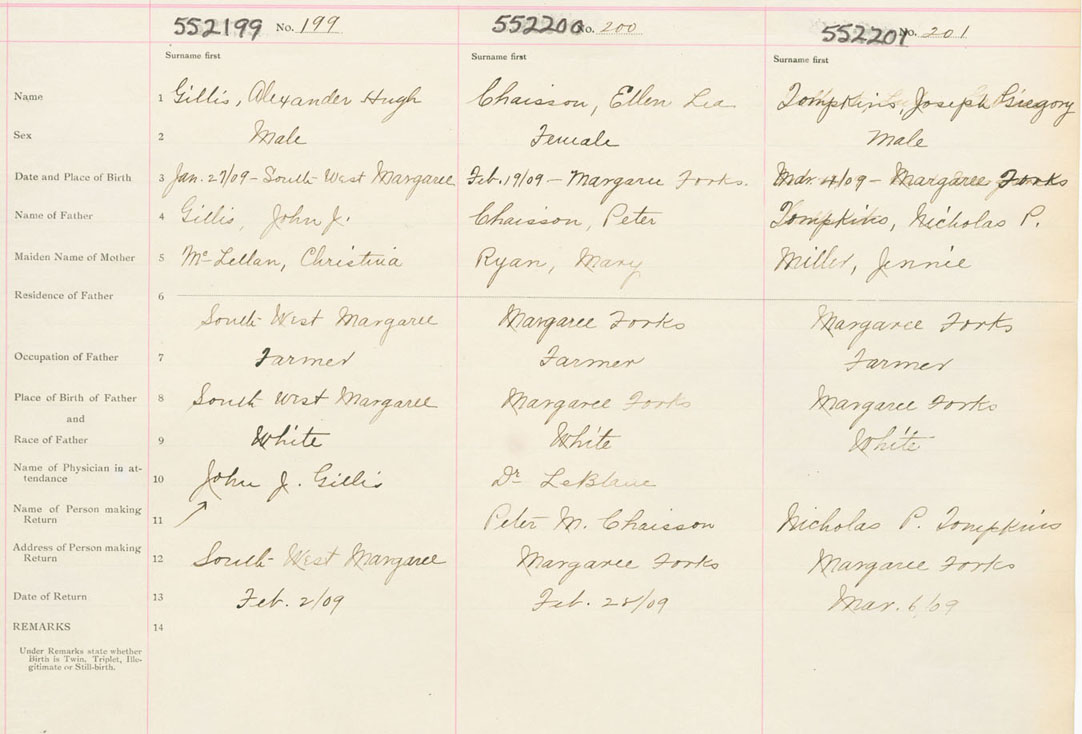 552199 No. 199 552200 No. 200 552201 No. 201
Surname first Surname first Surname first
Name 1 Gillis, Alexander Hugh Chaisson, Ellen Lea Tompkins, Joseph Gregory
Sex 2 Male Female Male
Date and Place of Birth 3 Jan. 27/09 - South West Margaree Feb. 19/09 - Margaree Forks. Mar. /09 - Margaree Forks
Name of Father 4 Gillis, John J. Chaisson, Peter Tompkins, Nicholas P.
Maiden Name of Mother 5 McLellan, Christina Ryan, Mary Miller, Jennie
Residence of Father 6
South West Margaree Margaree Forks Margaree Forks
Occupation of Father 7 Farmer Farmer Farmer
Place of Birth of Father 8 South West Margaree Margaree Forks Margaree Forks
and
Race of Father 9 White White White
Name of Physician in at-
tendance 10 John J. Gillis Dr LeBlanc
Name of Person making
Return 11 Peter M. Chaisson Nicholas P. Tompkins
Address of Person making
Return 12 South West Margaree Margaree Forks Margaree Forks
Date of Return 13 Feb. 2/09 Feb. 28/09 Mar. 6/09
REMARKS 14
Under Remarks state whether
Birth is Twin, Triplet, Ille-
gitimate or Still-birth.